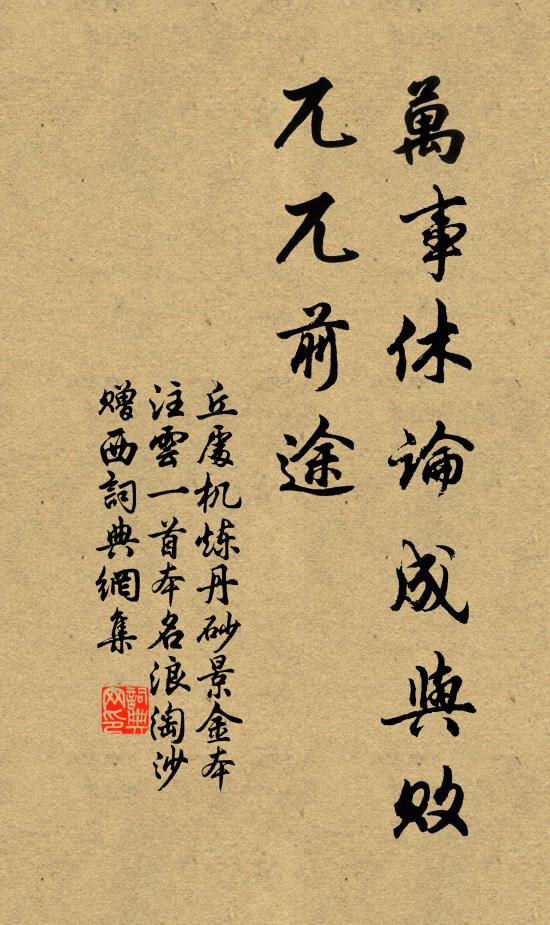 萬事休論成與敗
兀兀前途
丘處机炼丹砂景金本
注雲一首本名浪淘沙
赠西詞典網集
詞典
网印